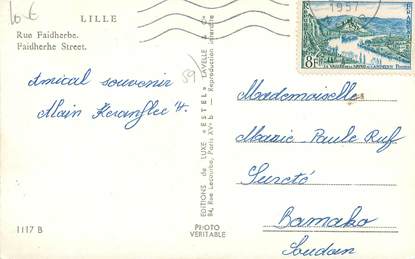 10 €
LILLE
Rue Faidherbe.
Faidherbe Street.
1957
8F
Amical souvenir
Alain
59
EDITIONS de LUXE "ESTEL" LAVELLE & Cie
84, Rue Lecourbe, Paris XVe - Reproduction interdite
Mademoiselle
Marie-Paule Ruf
Sureté
Bamako
Soudan
1117 B
PHOTO
VERITABLE